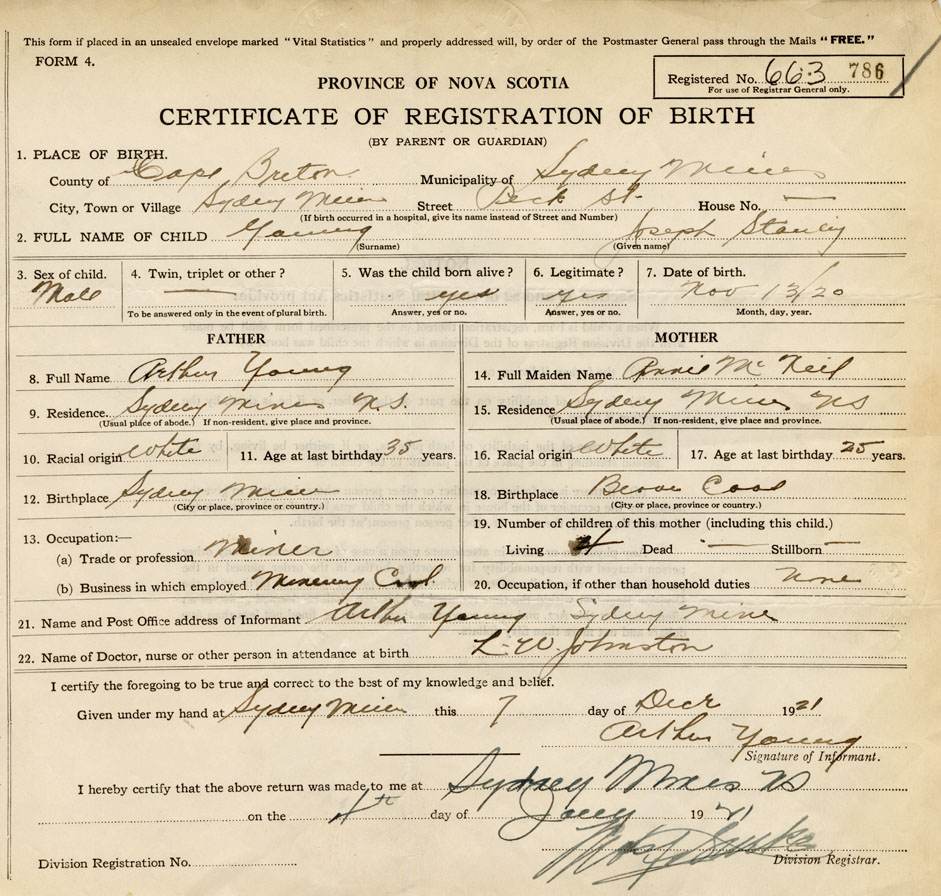 This form if placed in an unsealed envelope marked "Vital Statistics" and properly addressed will, by order of the Postmaster General pass through the Mails "FREE."
FORM 4.
Registered No. 663 786
For use of Registrar General only.
PROVINCE OF NOVA SCOTIA
CERTIFICATE OF REGISTRATION OF BIRTH
(BY PARENT OR GUARDIAN)
1. PLACE OF BIRTH.
County of Cape Breton Municipality of Sydney Mines
City, Town or Village Sydney Mines Street Peck St. House No. —
(If birth occurred in a hospital, give its name instead of Street and Number)
2. FULL NAME OF CHILD Young Joseph Stanley
(Surname) (Given name)
3. Sex of child. 4. Twin, triplet or other? 5. Was the child born alive? 6. Legitimate? 7. Date of birth.
Male — yes yes Nov 13/20
To be answered only in the event of plural birth. Answer, yes or no. Answer, yes or no. Month, day, year.
FATHER MOTHER
8. Full Name Arthur Young 14. Full Maiden Name Annie McNeil
9. Residence. Sydney Mines N.S. 15. Residence Sydney Mines NS
(Usual place of abode.) If non-resident, give place and province. (Usual place of abode.) If non-resident, give place and province.
10. Racial origin White 11. Age at last birthday 35 years. 16. Racial origin White 17. Age at last birthday 25 years.
12. Birthplace Sydney Mines 18. Birthplace
(City or place, province or country.) (City or place, province or country.)
13. Occupation:— 19. Number of children of this mother (including this child.)
(a) Trade or profession Miner Living 4 Dead — Stillborn —
(b) Business in which employed Coal 20. Occupation, if other than household duties None
21. Name and Post Office address of Informant Arthur Young Sydney Mines
22. Name of Doctor, nurse or other person in attendance at birth L. W. Johnston
I certify the foregoing to be true and correct to the best of my knowledge and belief.
Given under my hand at Sydney Mines this 7 day of Decr 1921
Arthur Young
Signature of Informant.
I hereby certify that the above return was made to me at Sydney Mines NS
on the 4th day of Jany 1921
Division Registration No. Division Registrar.